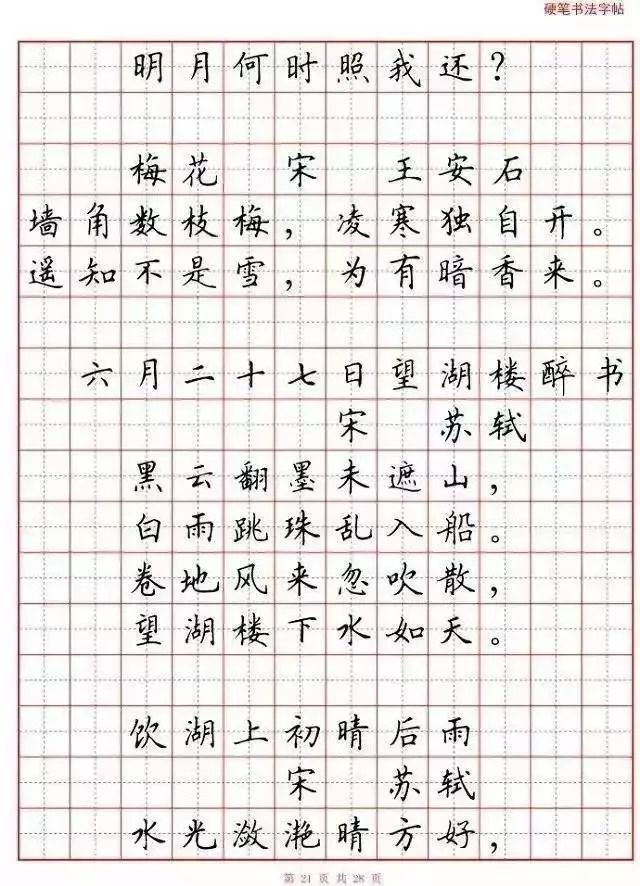 硬笔书法字帖
明月何时照我还?
梅花 宋 王安石
墙角数枝梅，凌寒独自开。
遥知不是雪，为有暗香来。
六月二十七日望湖楼醉书
宋 苏轼
黑云翻墨未遮山，
白雨跳珠乱入船。
卷地风来忽吹散，
望湖楼下水如天。
饮湖上初晴后雨
宋 苏轼
水光潋滟晴方好，
第 21 页 共 28 页